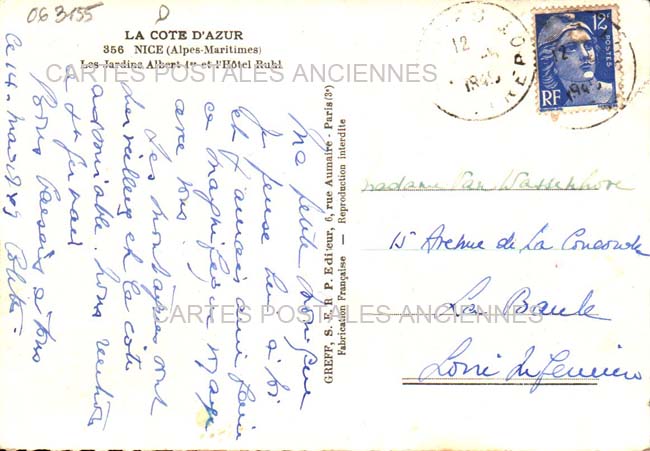 063155
D
LA COTE D'AZUR
356 NICE (Alpes-Maritimes)
Les Jardins Albert 1er et l'Hôtel Ruhl
CARTES POSTALES ANCIENNES
Ma petite
Je pense à toi
et j'aurais aimé faire
ce magnifique voyage
avec vous
Les montagnes sont
et la côte
admirable. Nous
Bons baisers à tous
Colette
GREFF, S. E. R. P. Editeur, 6, rue Aumaire - Paris (3e)
Fabrication Française — Reproduction interdite
12
1949
12F
POSTES
RF
Madame Van
15 Avenue de La Concorde
La Baule
Loire Inférieure
CARTES POSTALES ANCIENNES